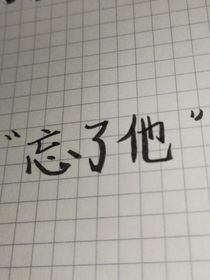 “忘了他”